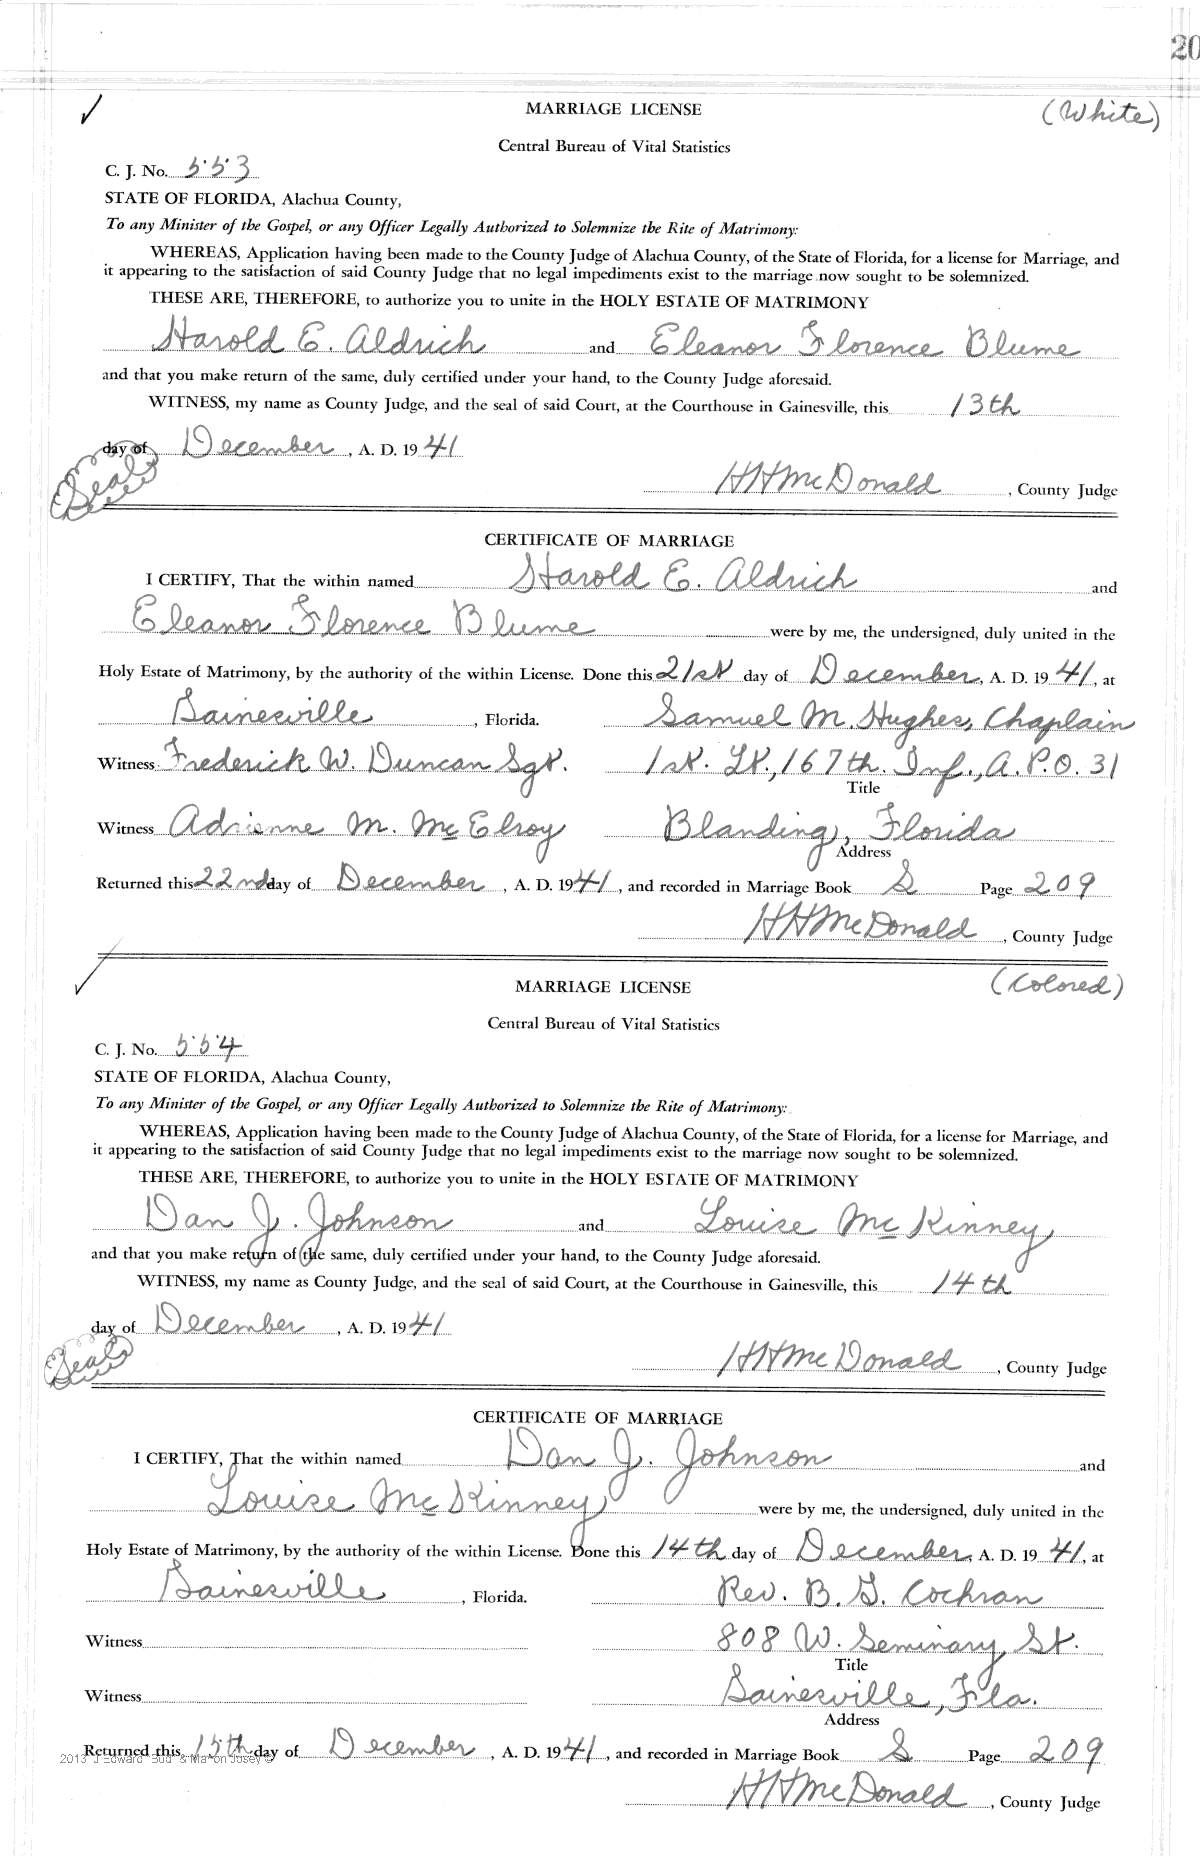 20
MARRIAGE LICENSE (White)
Central Bureau of Vital Statistics
C. J. No. 553
STATE OF FLORIDA, Alachua County,
To any Minister of the Gospel, or any Officer Legally Authorized to Solemnize the Rite of Matrimony:
WHEREAS, Application having been made to the County Judge of Alachua County, of the State of Florida, for a license for Marriage, and
it appearing to the satisfaction of said County Judge that no legal impediments exist to the marriage now sought to be solemnized.
THESE ARE, THEREFORE, to authorize you to unite in the HOLY ESTATE OF MATRIMONY
Harold E. Aldrich and Eleanor Florence Blume
and that you make return of the same, duly certified under your hand, to the County Judge aforesaid.
WITNESS, my name as County Judge, and the seal of said Court, at the Courthouse in Gainesville, this 13th
day of December, A. D. 1941
Seal
HHMcDonald, County Judge
CERTIFICATE OF MARRIAGE
I CERTIFY, That the within named Harold E. Aldrich and
Eleanor Florence Blume were by me, the undersigned, duly united in the
Holy Estate of Matrimony, by the authority of the within License. Done this 21st day of December, A. D. 1941, at
Gainesville, Florida. Samuel M. Hughes, Chaplain
Witness Frederick W. Duncan Sgt. 1st. Lt., 167th. Inf., A.P.O. 31
Title
Witness Adrienne M. McElroy Blanding, Florida
Address
Returned this 22nd day of December, A. D. 1941, and recorded in Marriage Book S Page 209
HHMcDonald, County Judge
MARRIAGE LICENSE (Colored)
Central Bureau of Vital Statistics
C. J. No. 554
STATE OF FLORIDA, Alachua County,
To any Minister of the Gospel, or any Officer Legally Authorized to Solemnize the Rite of Matrimony:
WHEREAS, Application having been made to the County Judge of Alachua County, of the State of Florida, for a license for Marriage, and
it appearing to the satisfaction of said County Judge that no legal impediments exist to the marriage now sought to be solemnized.
THESE ARE, THEREFORE, to authorize you to unite in the HOLY ESTATE OF MATRIMONY
Dan J. Johnson and Louise McKinney
and that you make return of the same, duly certified under your hand, to the County Judge aforesaid.
WITNESS, my name as County Judge, and the seal of said Court, at the Courthouse in Gainesville, this 14th
day of December, A. D. 1941
Seal
HHMcDonald, County Judge
CERTIFICATE OF MARRIAGE
I CERTIFY, That the within named Dan J. Johnson and
Louise McKinney were by me, the undersigned, duly united in the
Holy Estate of Matrimony, by the authority of the within License. Done this 14th day of December, A. D. 1941, at
Gainesville, Florida. Rev. B. G. Cochran
Witness 808 W. Seminary St.
Title
Witness Gainesville, Fla.
Address
Returned this 15th day of December, A. D. 1941, and recorded in Marriage Book S Page 209
2013 J Edward "Bud" & Marion Josey ©
HHMcDonald, County Judge